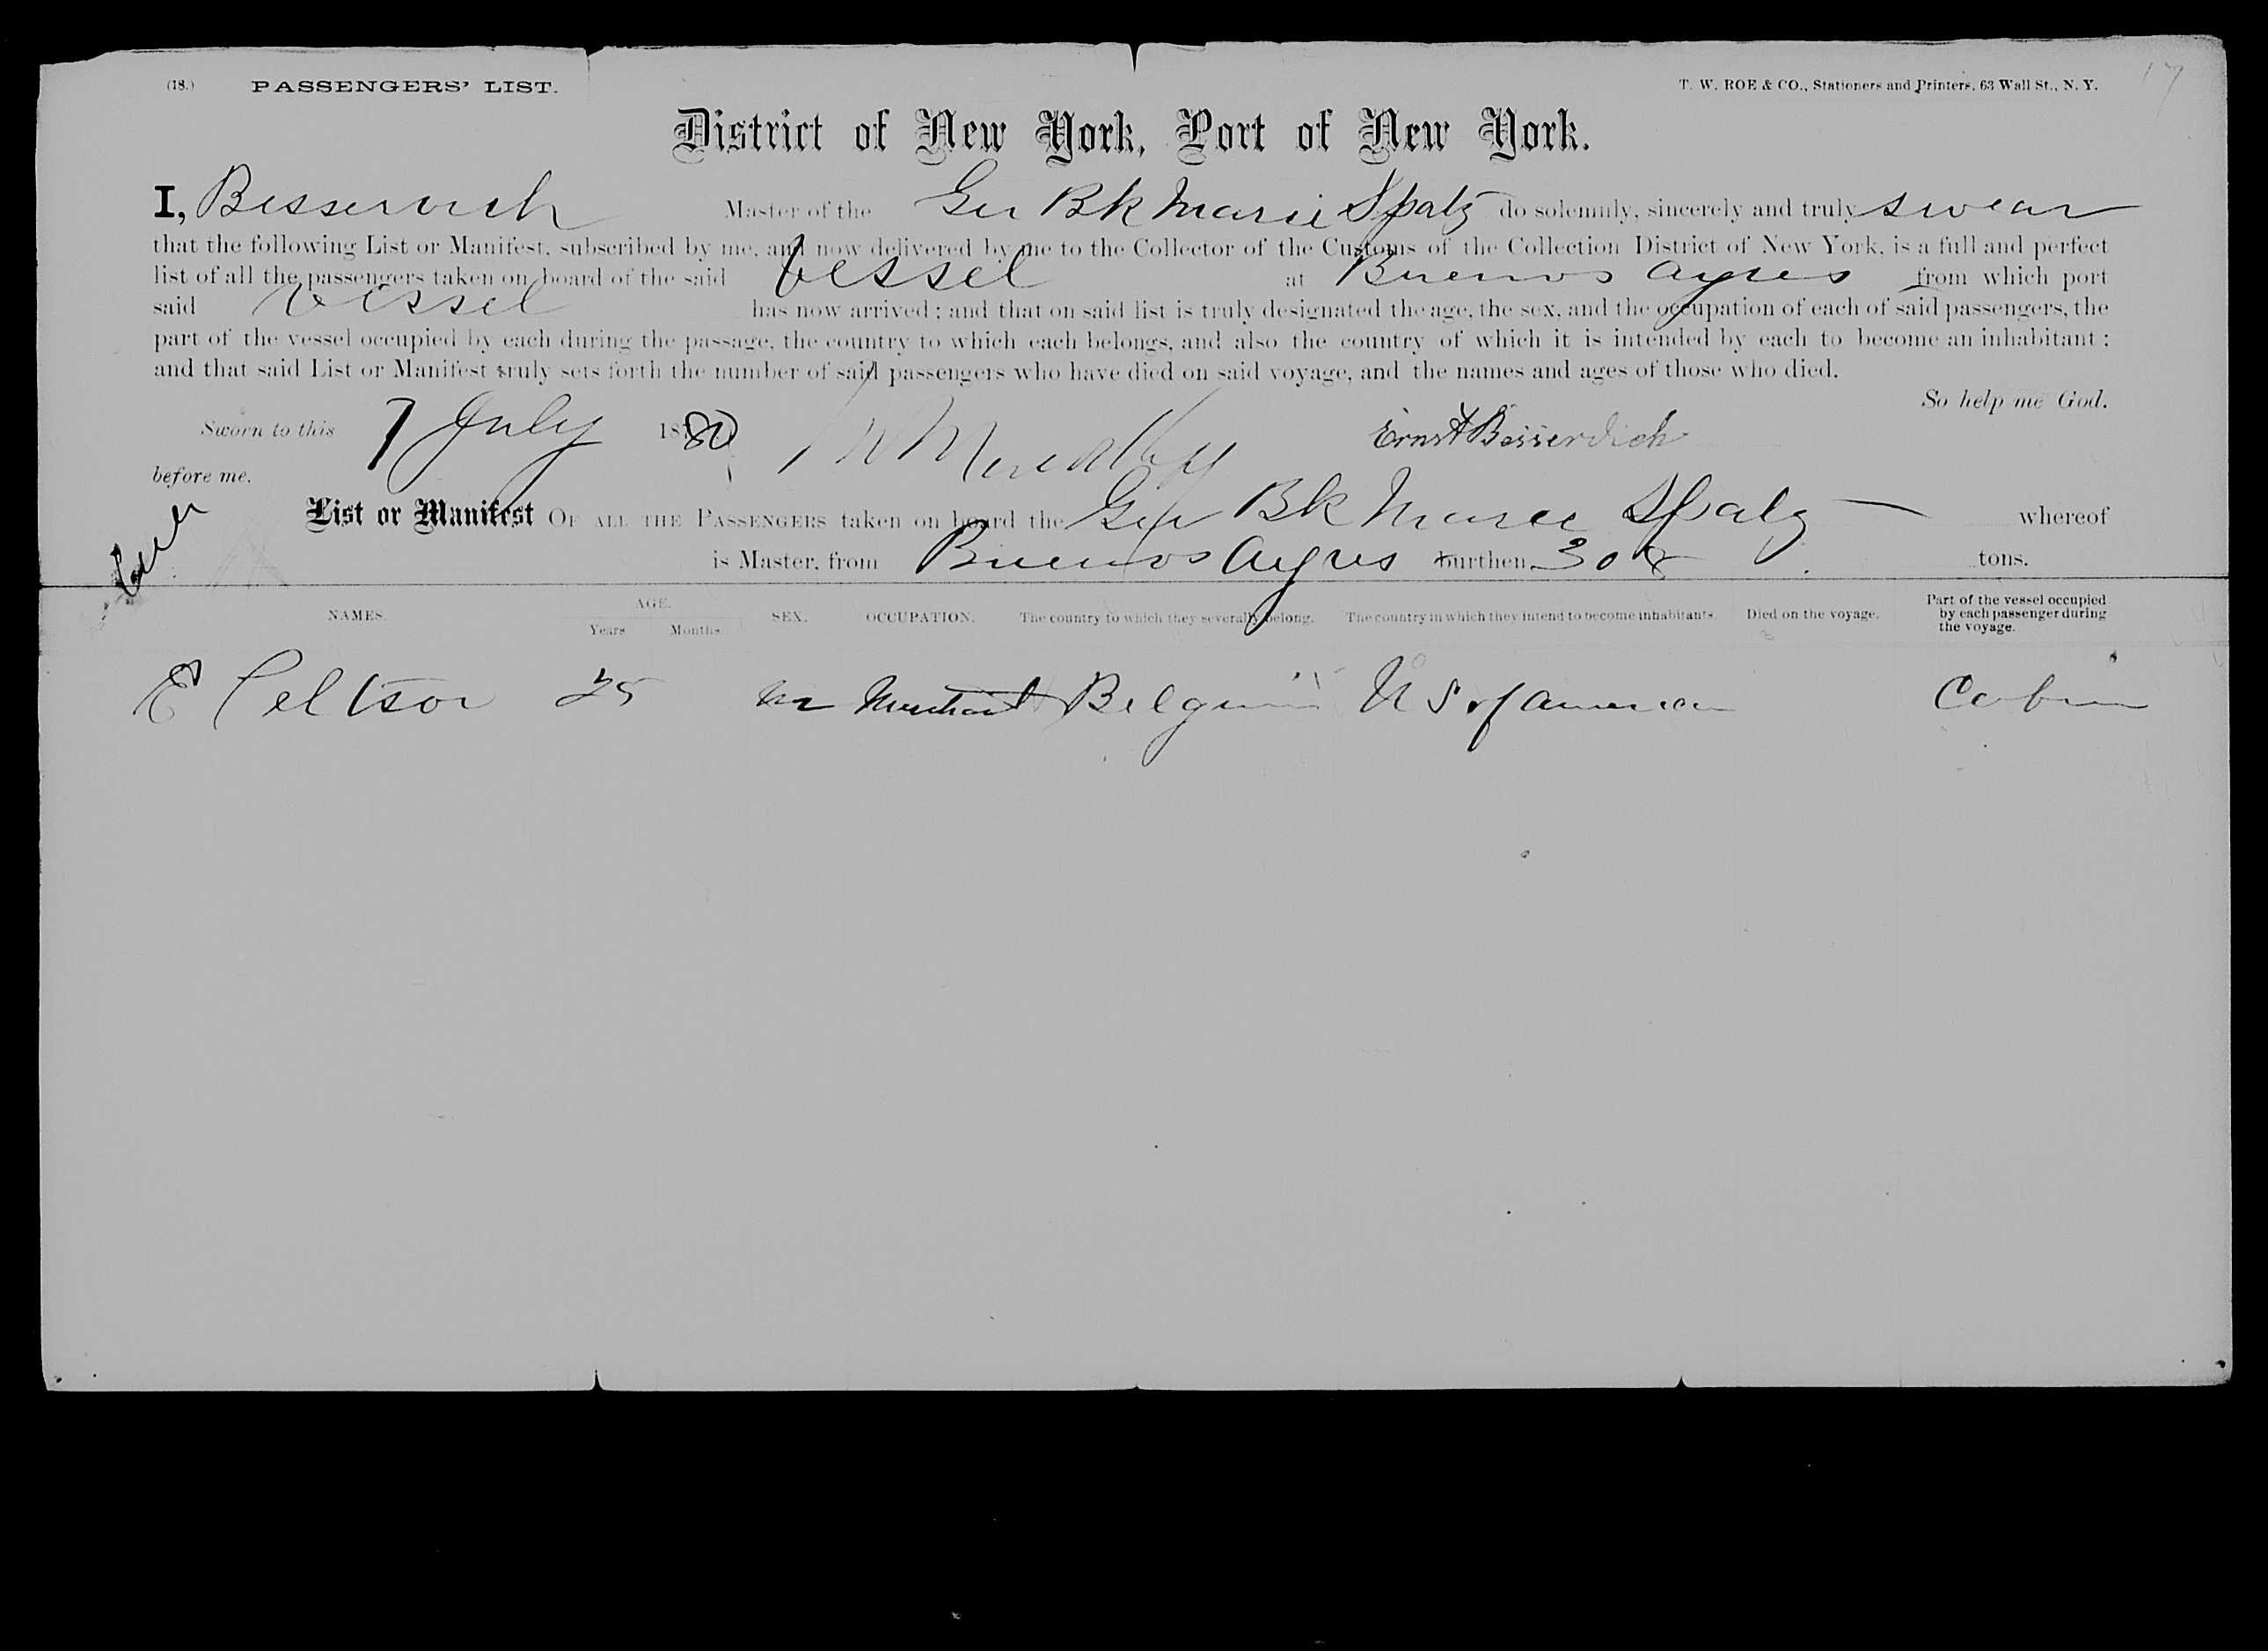 (18.) PASSENGERS' LIST. T. W. ROE & CO., Stationers and Printers, 63 Wall St., N. Y. 17
District of New York, Port of New York.
I, Besserdich Master of the Ger Bk Marie Spatz do solemnly, sincerely and truly swear
that the following List or Manifest, subscribed by me, and now delivered by me to the Collector of the Customs of the Collection District of New York, is a full and perfect
list of all the passengers taken on board of the said Vessel at Buenos Ayres from which port
said Vessel has now arrived; and that on said list is truly designated the age, the sex, and the occupation of each of said passengers, the
part of the vessel occupied by each during the passage, the country to which each belongs, and also the country of which it is intended by each to become an inhabitant;
and that said List or Manifest truly sets forth the number of said passengers who have died on said voyage, and the names and ages of those who died.
So help me God.
Sworn to this 7 July 1880 Ernst Besserdich
before me.
List or Manifest OF ALL THE PASSENGERS taken on board the Ger Bk Marie Spatz whereof
is Master, from Buenos Ayres burthen 308 tons.
NAMES. AGE. SEX. OCCUPATION. The country to which they severally belong. The country in which they intend to become inhabitants. Died on the voyage. Part of the vessel occupied by each passenger during the voyage.
Years Months.
E 25 m Merchant Belgium U S of America Cabin